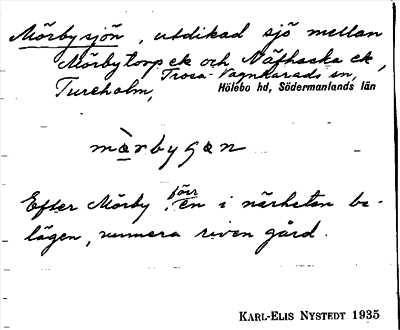 Mörbysjön, utdikad sjö mellan
Mörbytorp ek och Näfhaska ek,
Trosa-Vagnhärads sn,
Tureholm, Hölebo hd, Södermanlands län
mòrbygan
Efter Mörby, förr en i närheten be-
lägen, numera riven gård.
KARL-ELIS NYSTEDT 1935